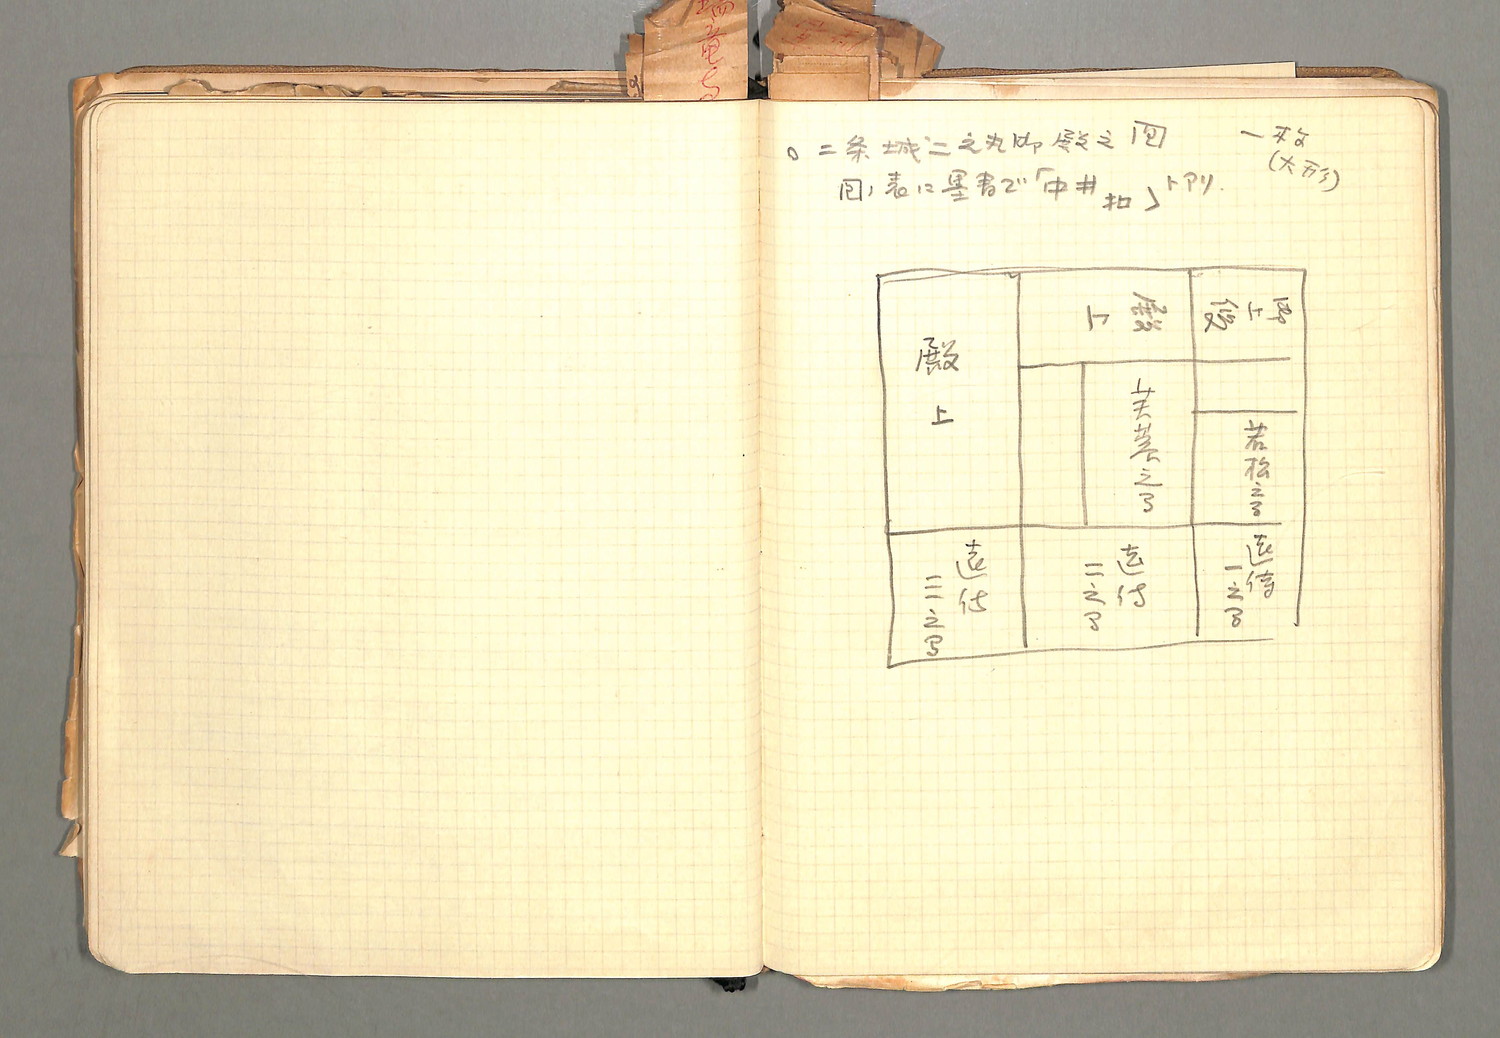 二条城二之丸御殿之図 一枚
(大形)
図ノ表に墨書で「中井 扣」トアリ.
殿上
殿上
芙蓉之間
若松之間
遠侍
一之間
遠侍
二之間
遠侍
三之間